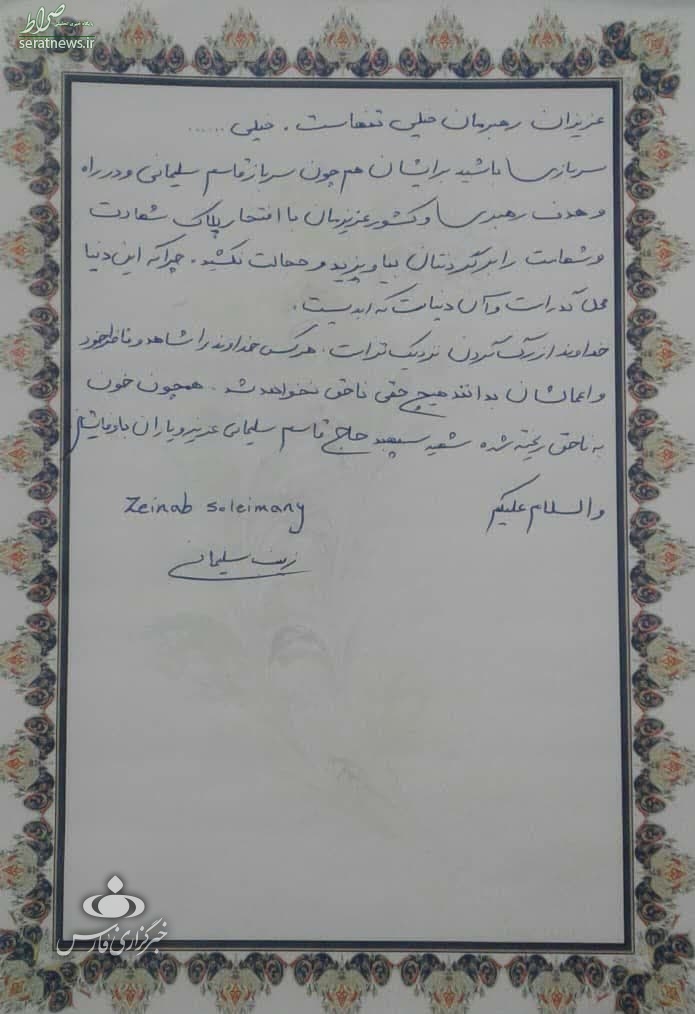 صراط
پایگاه خبری تحلیلی
seratnews.ir
عزیزان رهبرمان خیلی تنهاست . خیلی ......
سربازی باشید برایشان هم چون سرباز قاسم سلیمانی و در راه
و هدف رهبری و کشور عزیزمان با افتخار پلاک شهادت
و شهامت را بر گردنتان بیاویزید و خجالت نکشید . چرا که این دنیا
محل گذر است و آن دنیاست که ابدیست .
خداوند از رگ گردن نزدیک تر است . هر کس خداوند را شاهد و ناظر خود
و اعمالشان بدانند هیچ حقی ناحق نخواهد شد . همچون خون
به ناحق ریخته شده شهید سپهبد حاج قاسم سلیمانی عزیز و یاران باوفایشان
والسلام علیکم
Zeinab soleimany
زینب سلیمانی
خبرگزاری فارس